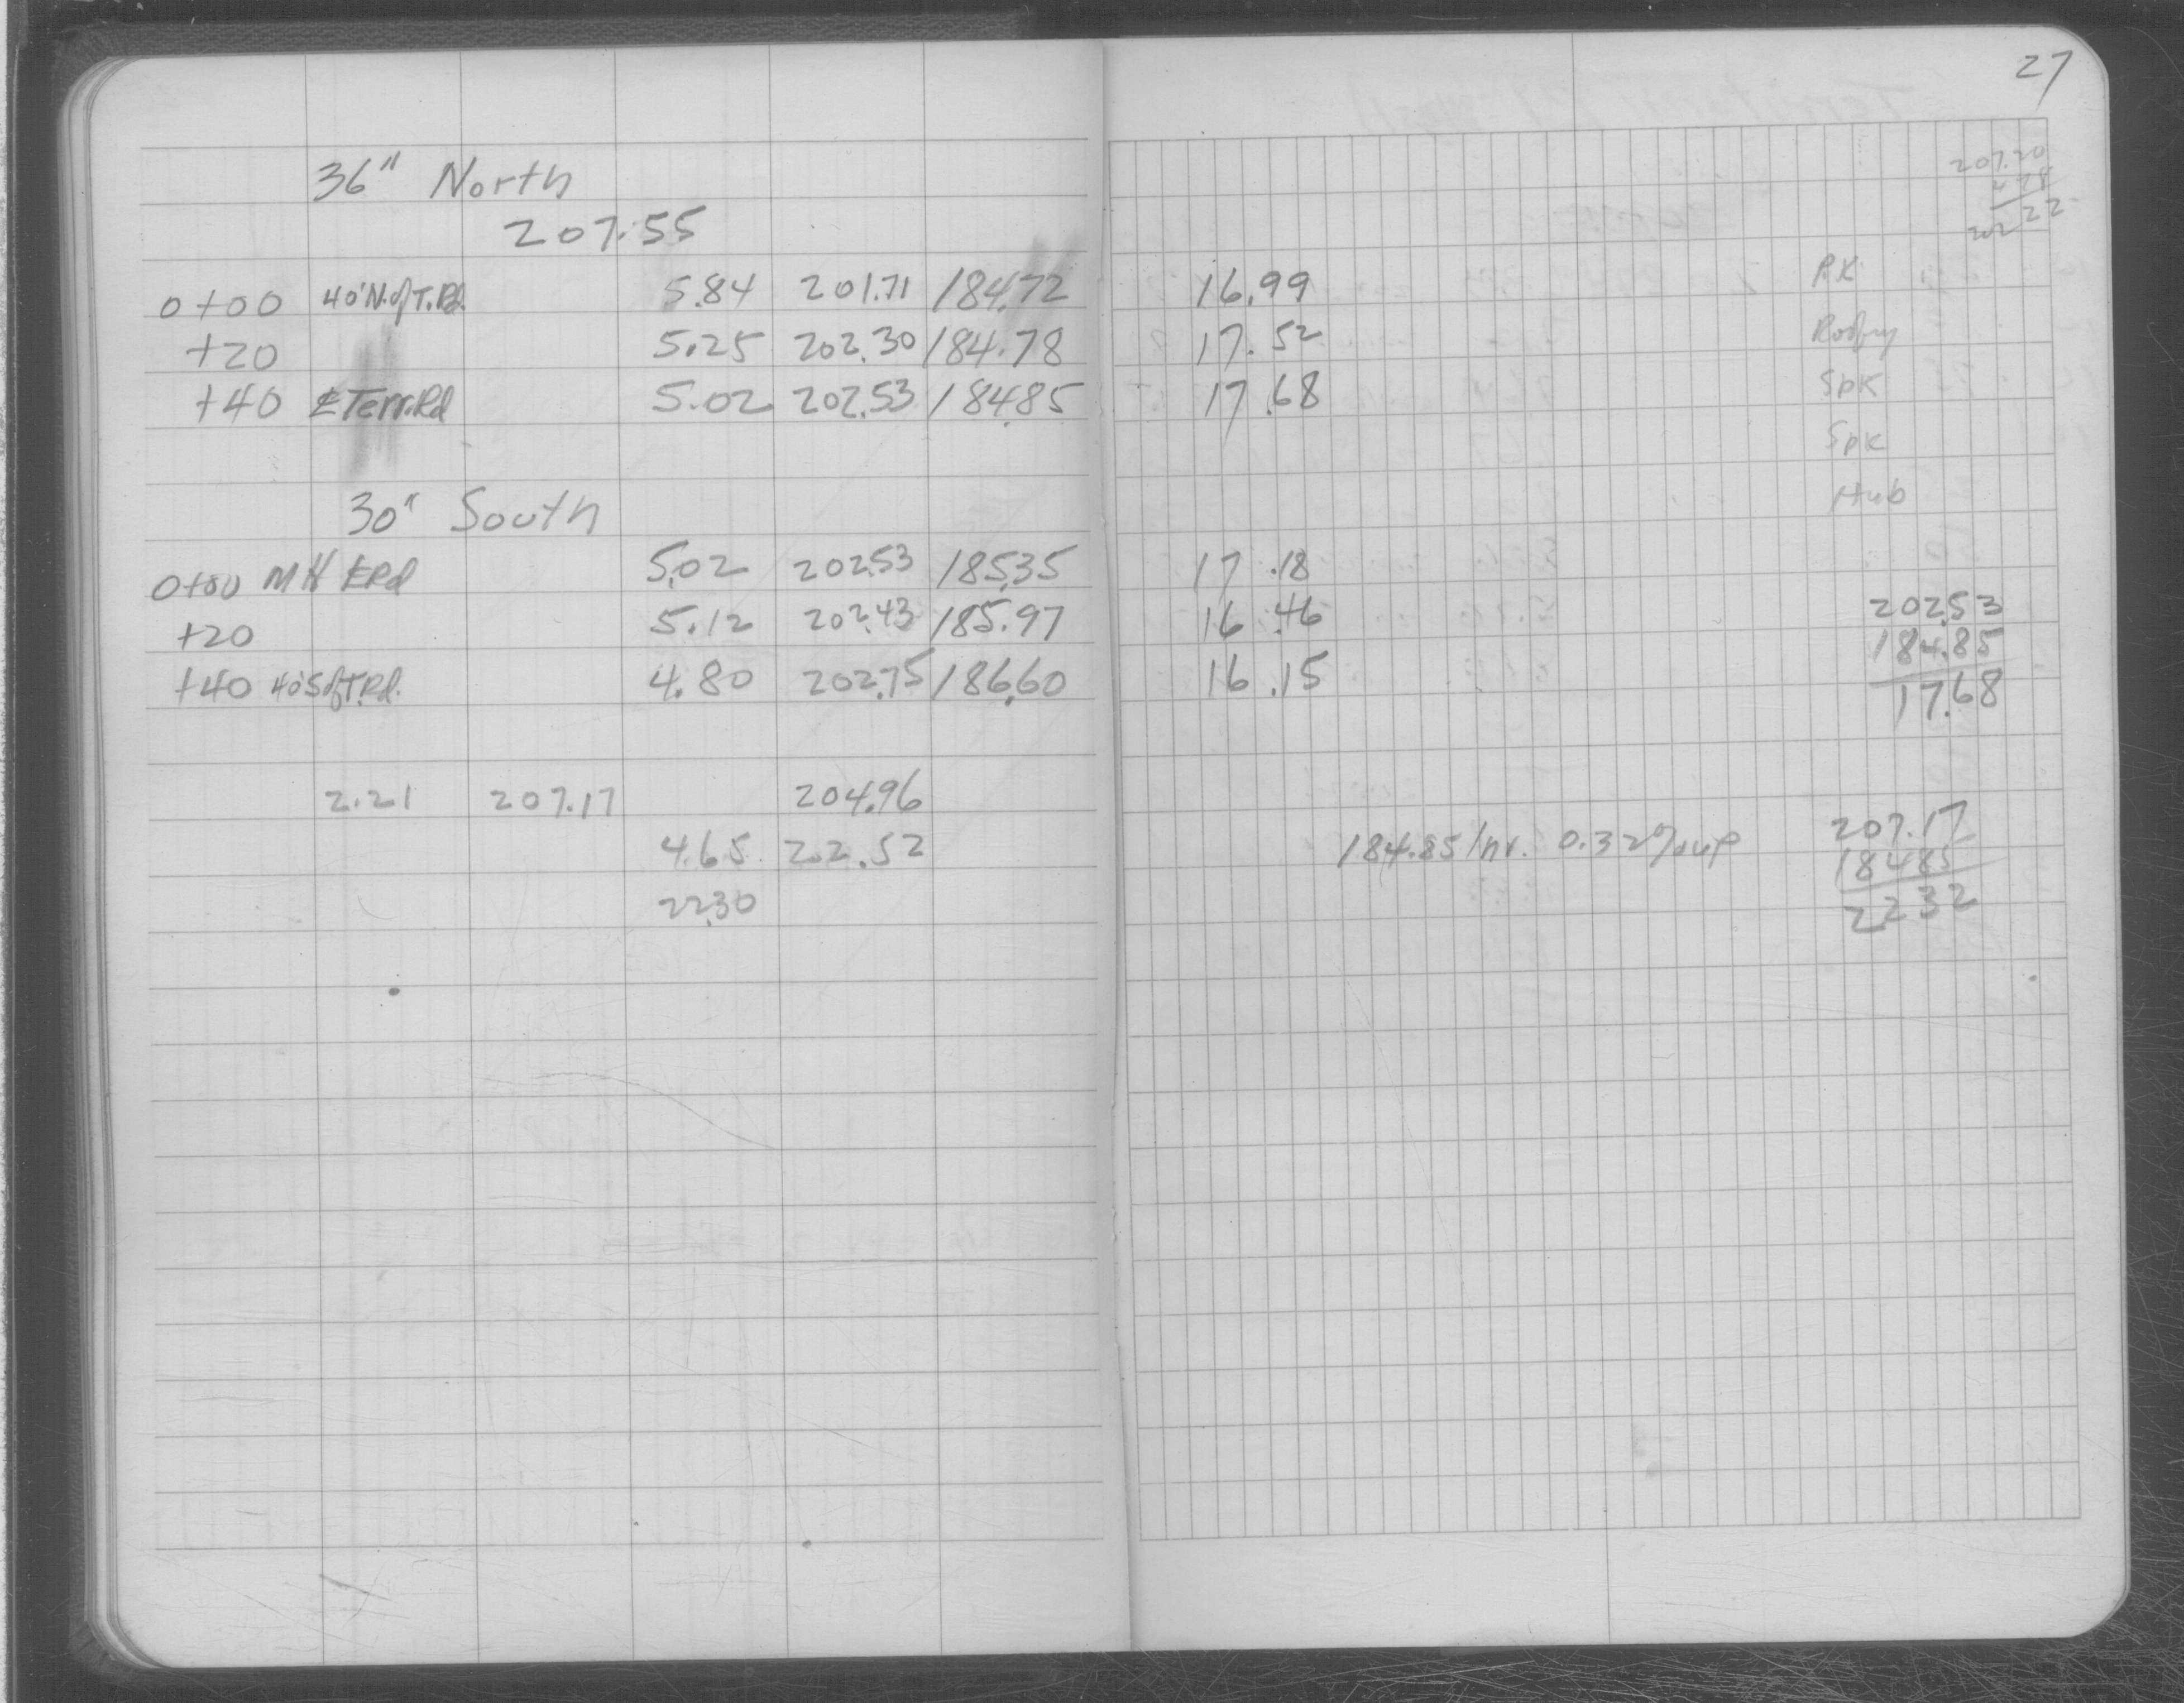 36" North
207.55
0+00 40'N.of T.Rd. 5.84 201.71 184.72
+20 5.25 202.30 184.78
+40 ℄ Terr.Rd 5.02 202.53 184.85
30" South
0+00 MH ℄ Rd 5.02 202.53 185.35
+20 5.12 202.43 185.97
+40 40'S of T.Rd. 4.80 202.75 186.60
2.21 207.17 204.96
4.65 202.52
22.30
27
207.20
202.22
16.99 PK
17.52
17.68 Spk
Spk
Hub
17.18
16.46 202.53
184.85
16.15 17.68
207.17
184.85 Inv. 0.32% up 184.85
22.32